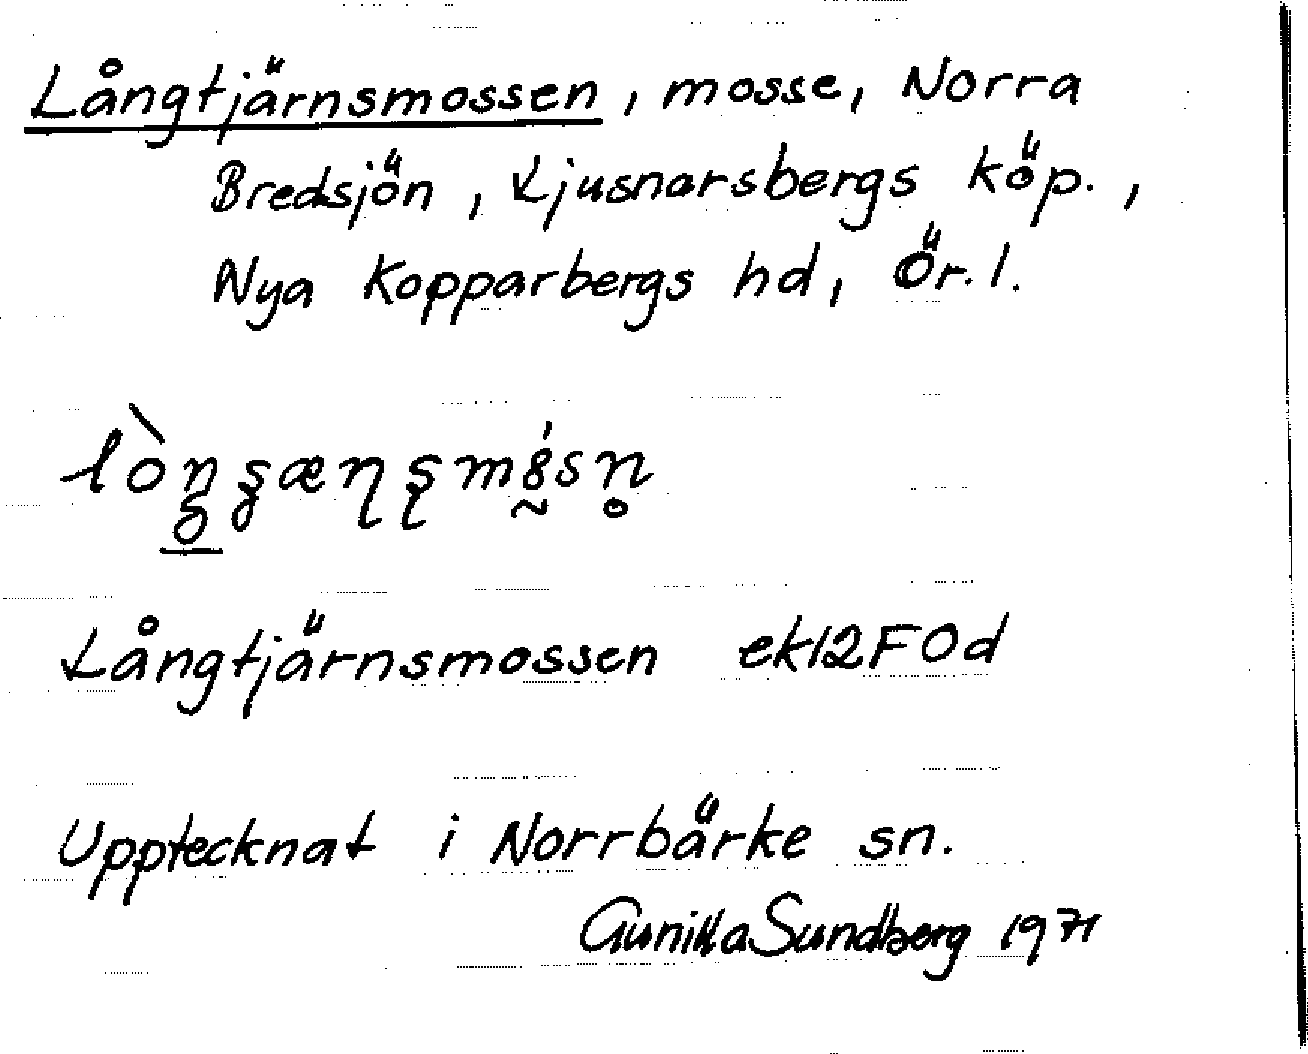 Långtjärnsmossen, mosse, Norra
Bredsjön, Ljusnarsbergs köp.,
Nya Kopparbergs hd, Ör. l.
Långtjärnsmossen ek12F0d
Upptecknat i Norrbärke sn.
Gunilla Sundberg 1971